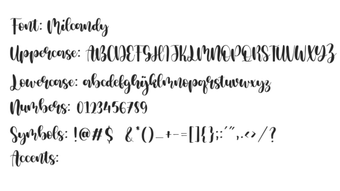 Font: Milcandy
Uppercase: ABCDEFGHIJKLMNOPQRSTUVWXYZ
Lowercase: abcdefghijklmnopqrstuvwxyz
Numbers: 0123456789
Symbols: !@#$ &*()_+-=[]{};:'",.<>/?
Accents: